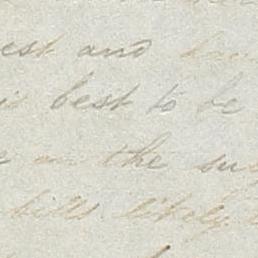 est and
is best to be
on the su
bills likely